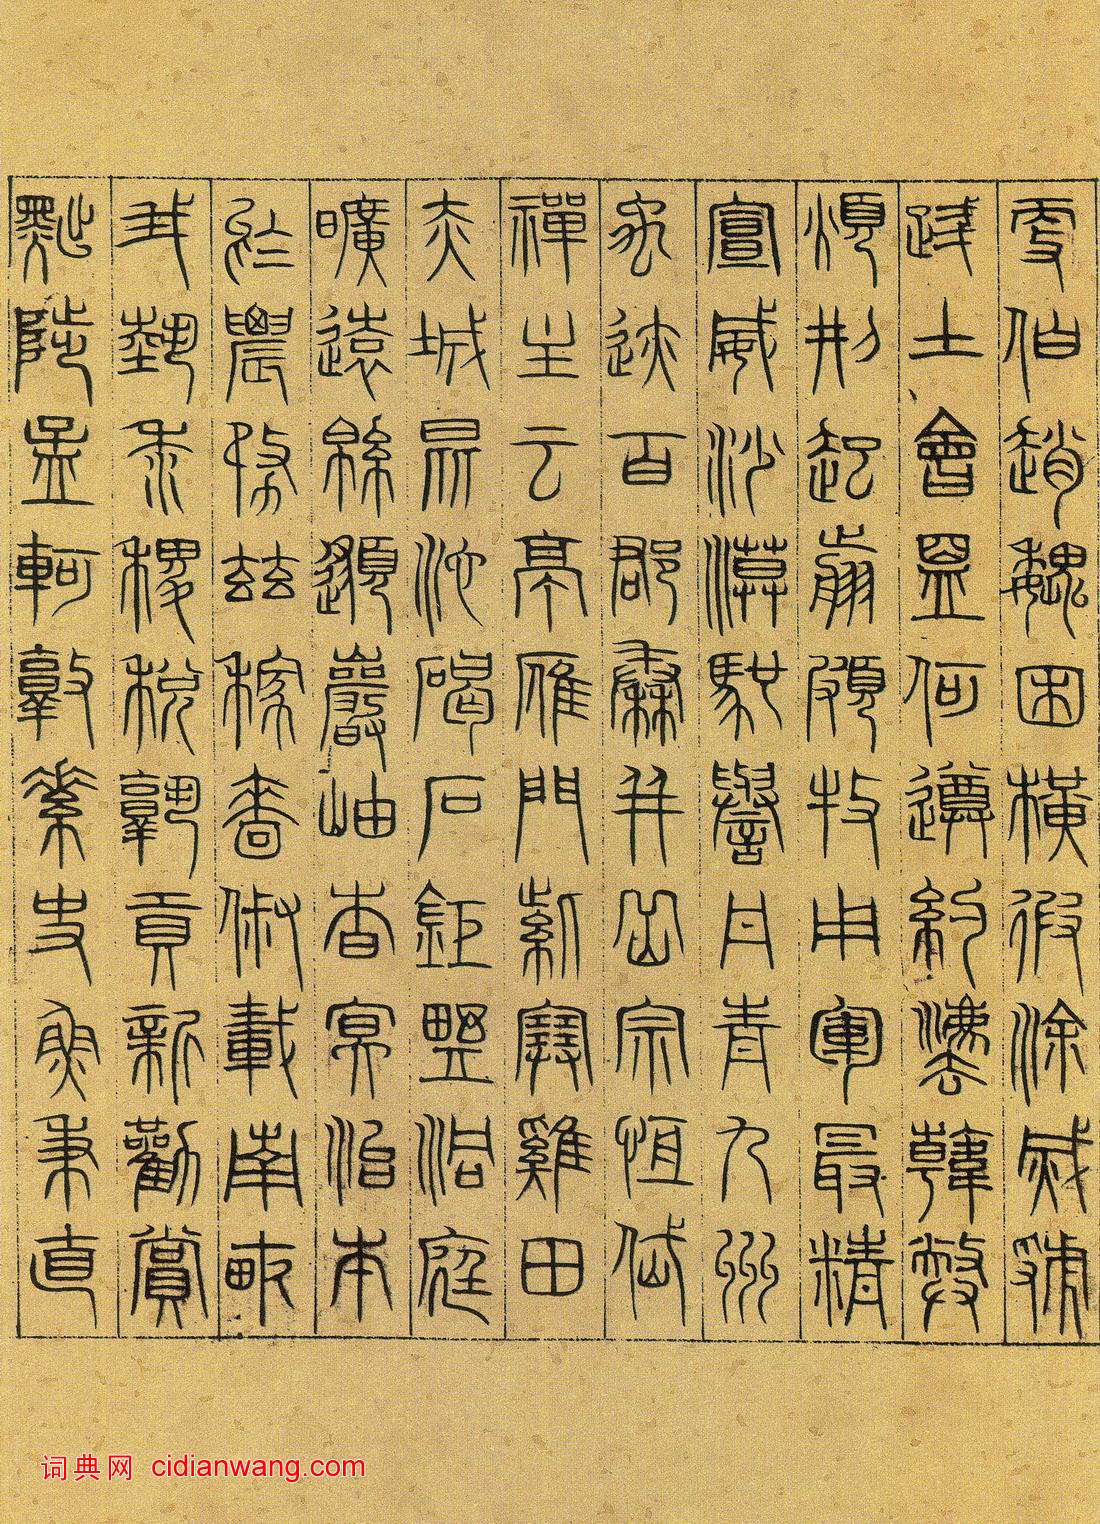 更伯趙魏困橫假涂滅虢
踐土會盟何遵約灋韓弊
煩刑起翦頗牧用軍最精
宣威沙漠馳譽丹青九州
禹迹百郡秦并岳宗恆岱
禪主云亭雁門紫塞雞田
赤城昆池碣石鉅野洞庭
曠遠緜邈巖岫杳冥治本
於農務茲稼穡俶載南畝
我藝黍稷稅孰貢新勸賞
黜陟孟軻敦素史魚秉直
词典网 cidianwang.com